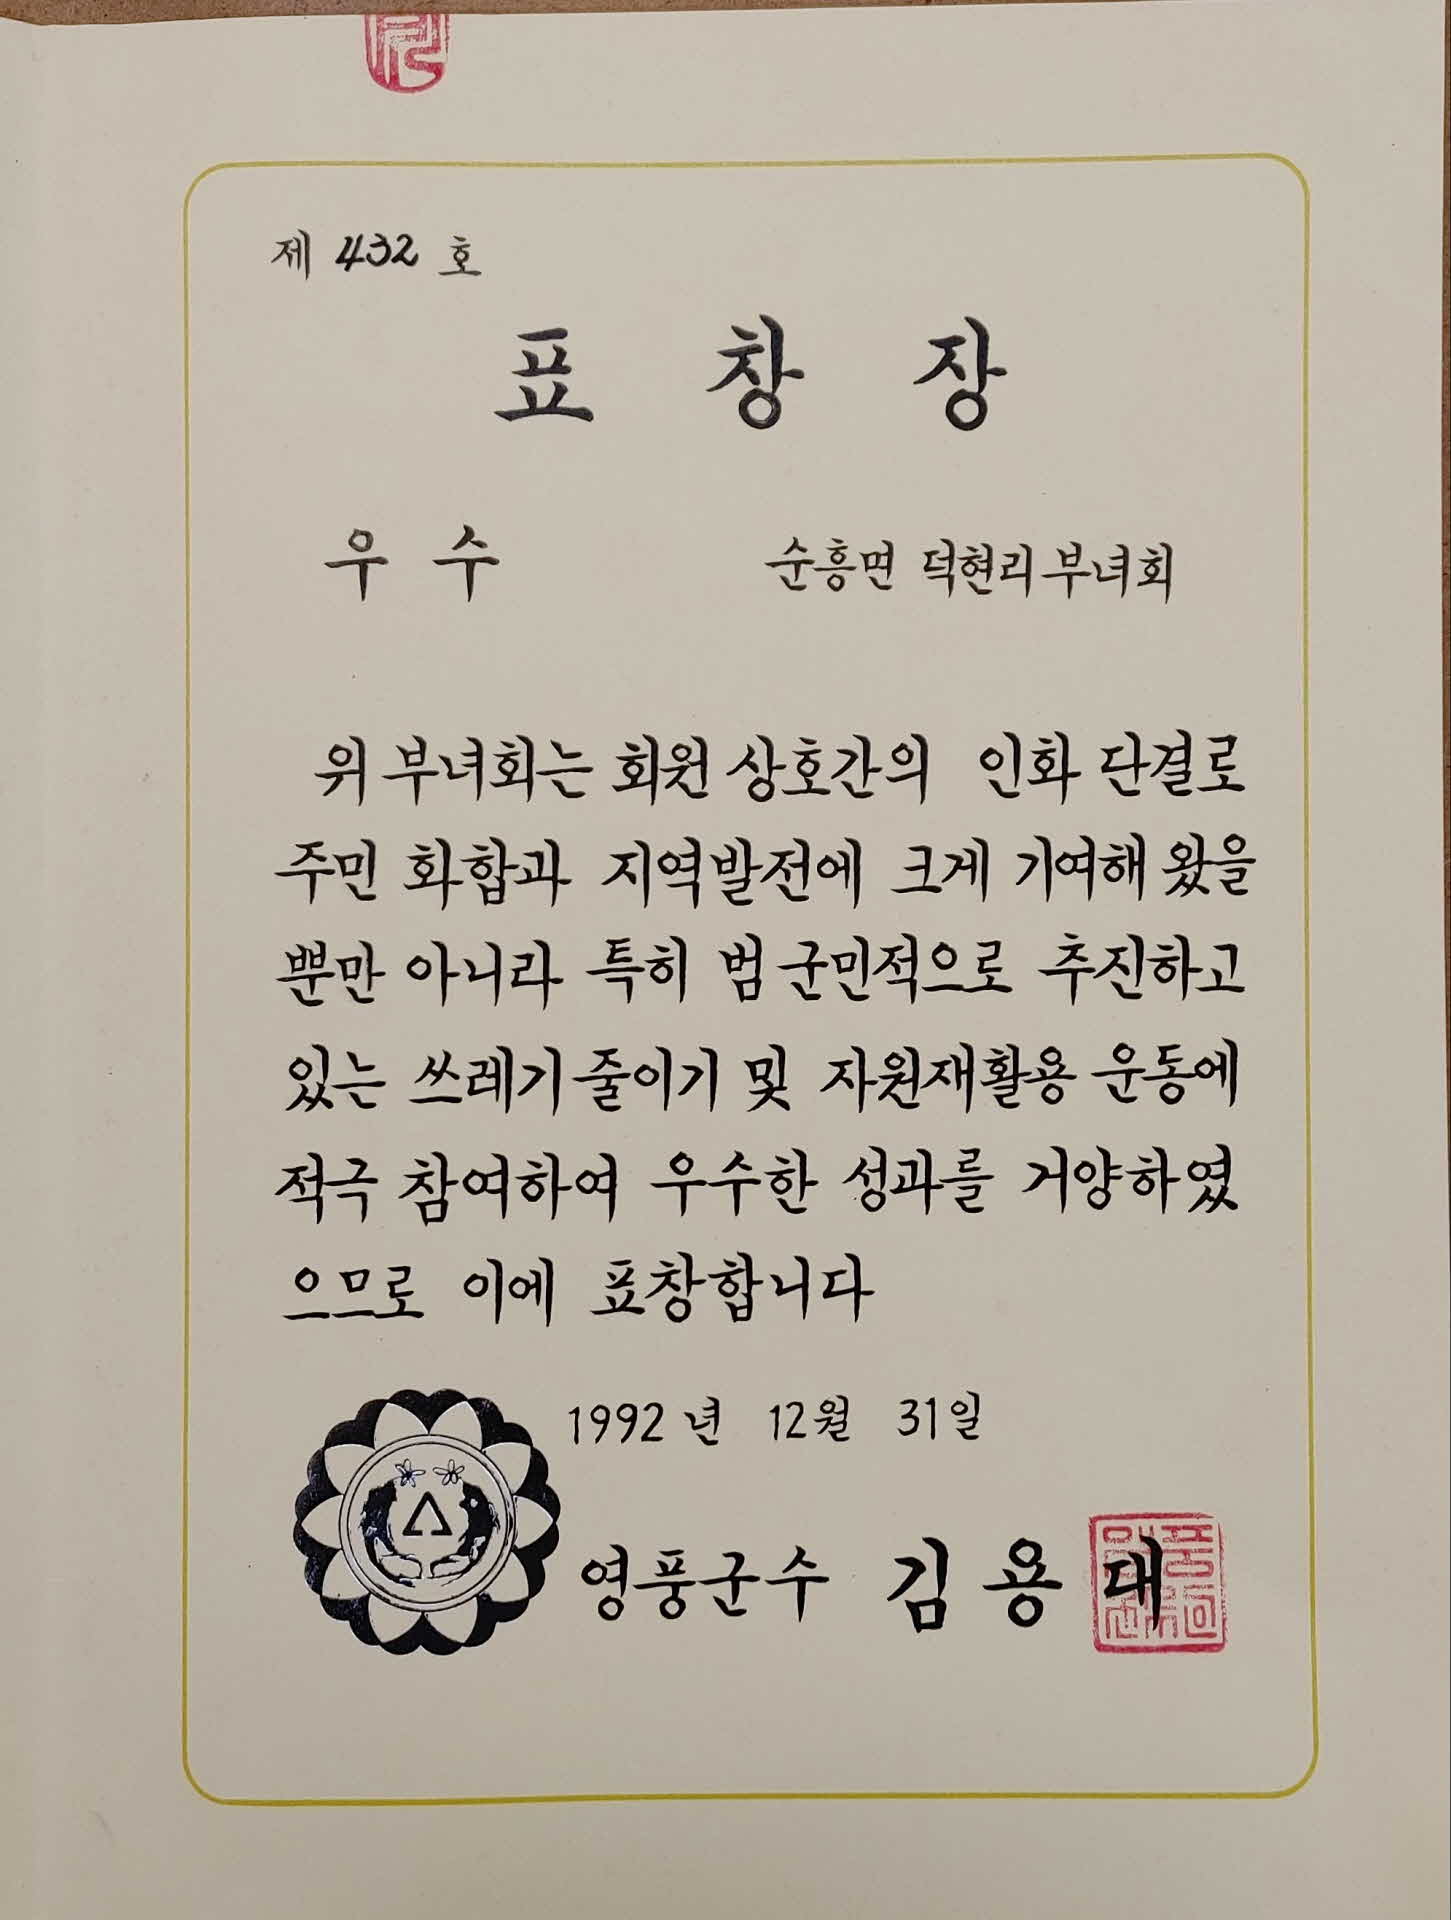 제 432 호
표 창 장
우 수 순흥면 덕현리 부녀회
위 부녀회는 회원 상호간의 인화 단결로
주민 화합과 지역발전에 크게 기여해 왔을
뿐만 아니라 특히 범 군민적으로 추진하고
있는 쓰레기 줄이기 및 자원재활용 운동에
적극 참여하여 우수한 성과를 거양하였
으므로 이에 표창합니다
1992 년 12월 31일
영풍군수 김 용 대